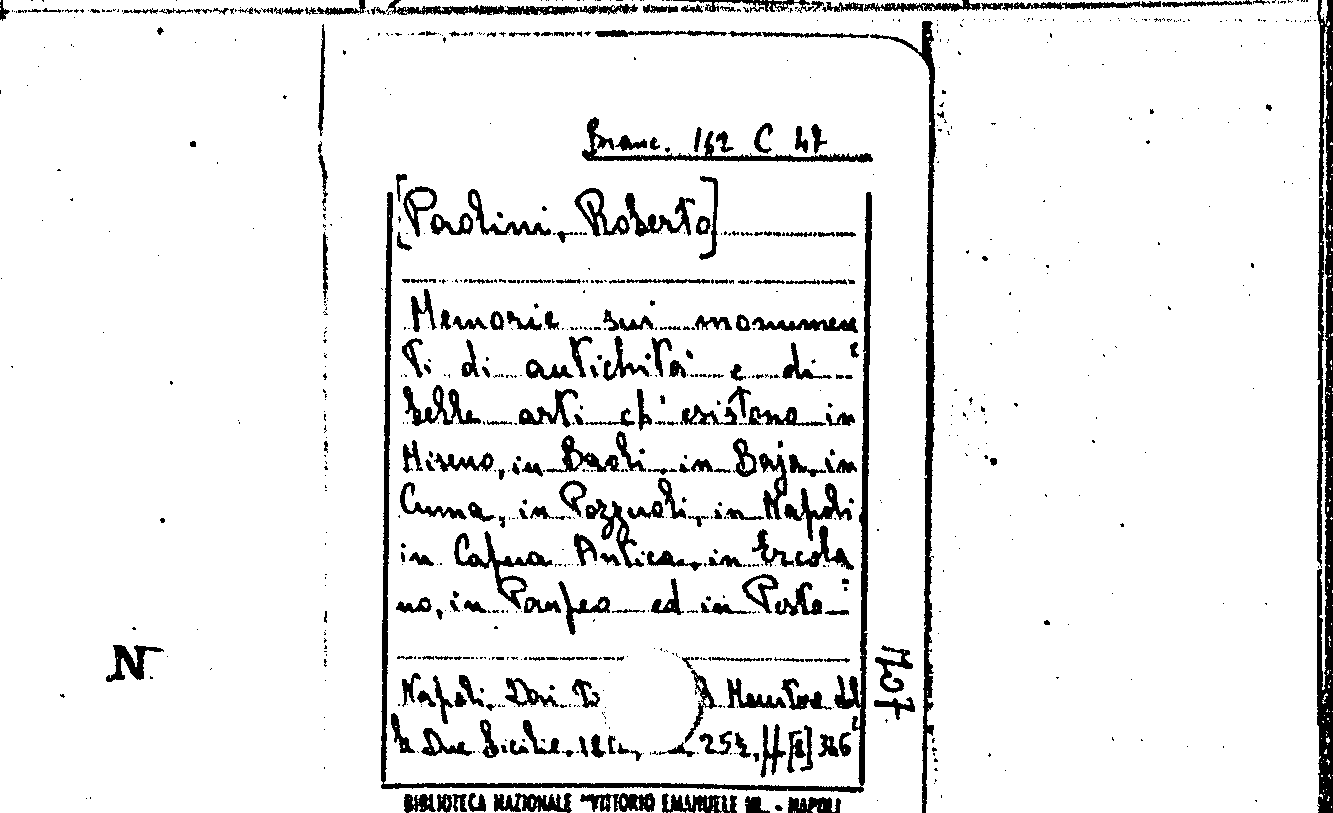 Branc. 162 C 47
[Paolini, Roberto]
Memorie sui monumen
ti di antichità e di
belle arti ch'esistono in
Miseno, in Baoli, in Baja, in
Cuma, in Pozzuoli, in Napoli,
in Capua Antica, in Ercola
no, in Pompeo ed in Pesto
Napoli, Dai Monitore del
le Due Sicilie, 254, 346
BIBLIOTECA NAZIONALE "VITTORIO EMANUELE III. - NAPOLI
N